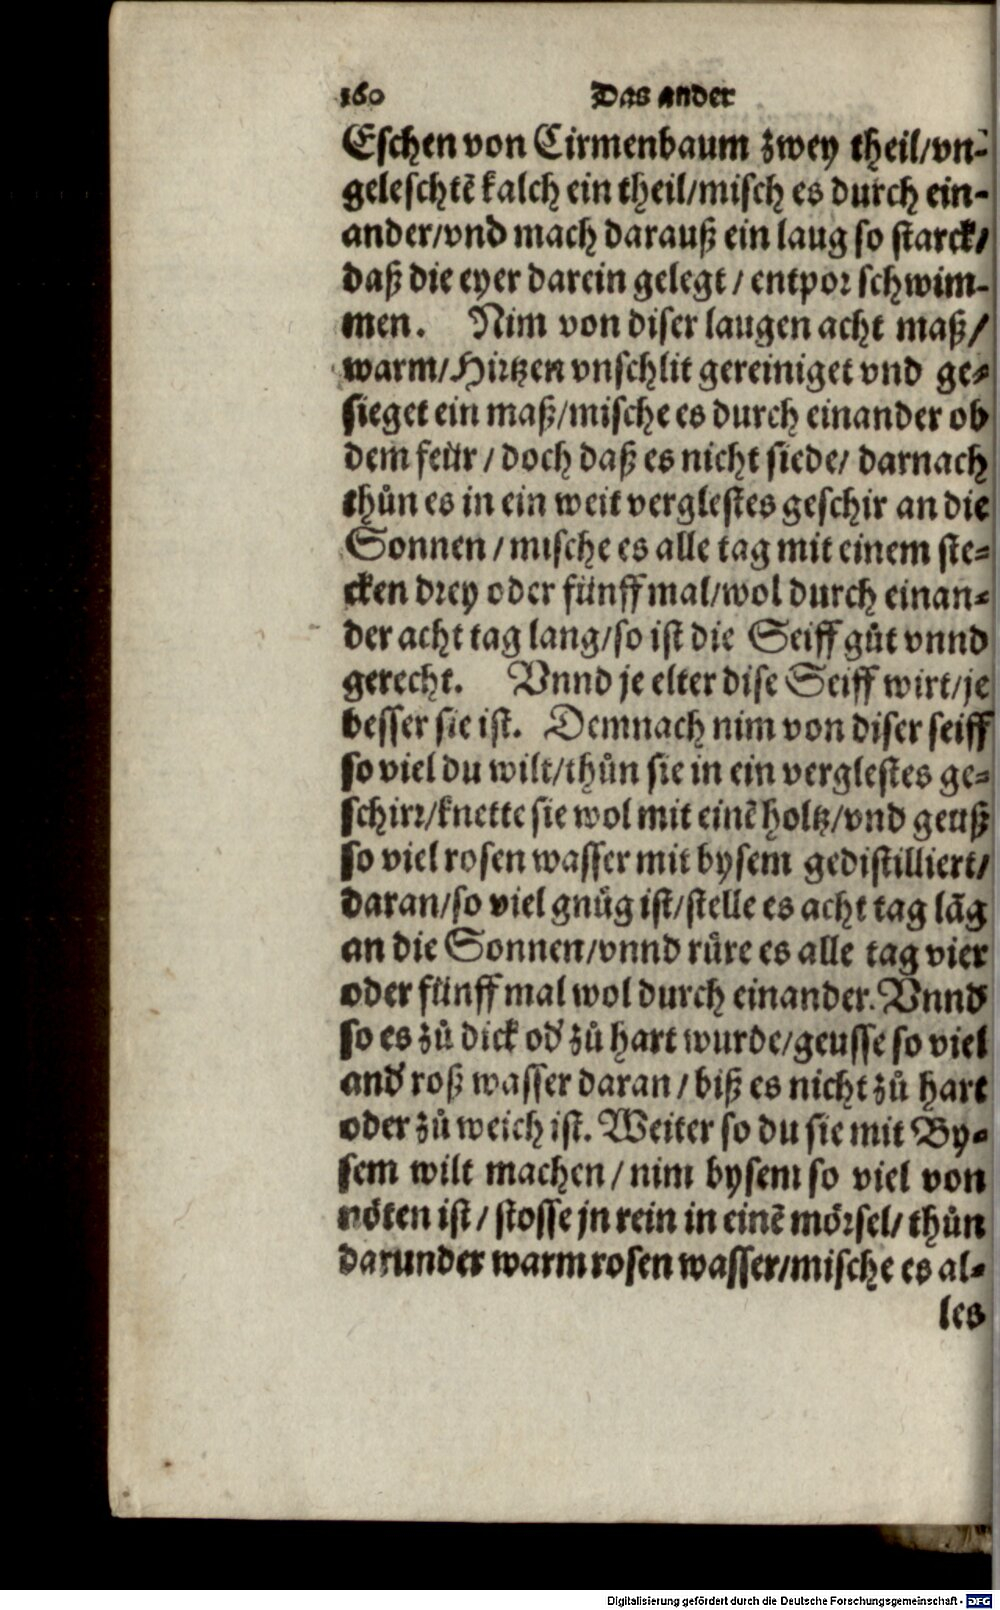 160 Das ander
Eschen von Cirmenbaum zwey theil/vn-
geleschtẽ kalch ein theil/misch es durch ein-
ander/vnd mach darauß ein laug so starck/
daß die eyer darein gelegt / entpor schwim-
men. Nim von diser laugen acht maß/
warm/Hirtzen vnschlit gereiniget vnd ge-
sieget ein maß/mische es durch einander ob
dem feür / doch daß es nicht siede/ darnach
thůn es in ein weit verglestes geschir an die
Sonnen / mische es alle tag mit einem ste-
cken drey oder fünff mal/wol durch einan-
der acht tag lang/so ist die Seiff gůt vnnd
gerecht. Vnnd je elter dise Seiff wirt/je
besser sie ist. Demnach nim von diser seiff
so viel du wilt/thůn sie in ein verglestes ge-
schirr/knette sie wol mit einẽ holtz/vnd geuß
so viel rosen wasser mit bysem gedistilliert/
daran/so viel gnůg ist/stelle es acht tag lãg
an die Sonnen/vnnd růre es alle tag vier
oder fünff mal wol durch einander. Vnnd
so es zů dick od' zů hart wurde/geusse so viel
and' roß wasser daran / biß es nicht zů hart
oder zů weich ist. Weiter so du sie mit By-
sem wilt machen / nim bysem so viel von
nöten ist / stosse jn rein in einẽ mörsel/ thůn
darunder warm rosen wasser/mische es al-
les
Digitalisierung gefördert durch die Deutsche Forschungsgemeinschaft - DFG